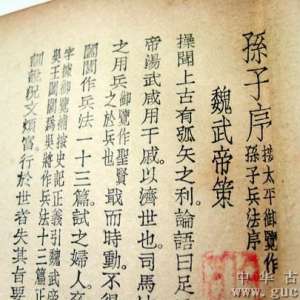 孫子序
按太平御覽作
孫子兵法序
魏武帝策
操聞上古有弧矢之利論語曰足
帝湯武咸用干戚以濟世也司馬
之用兵
御覽作聖賢
之於兵也
戢而時動不得
闔閭作兵法一十三篇試之婦人卒
字據御覽補按史記正義引魏武帝
吳王闔閭爲吳將作兵法十三篇正
訓說況文煩富行於世者失其旨要
中华古
www.guc